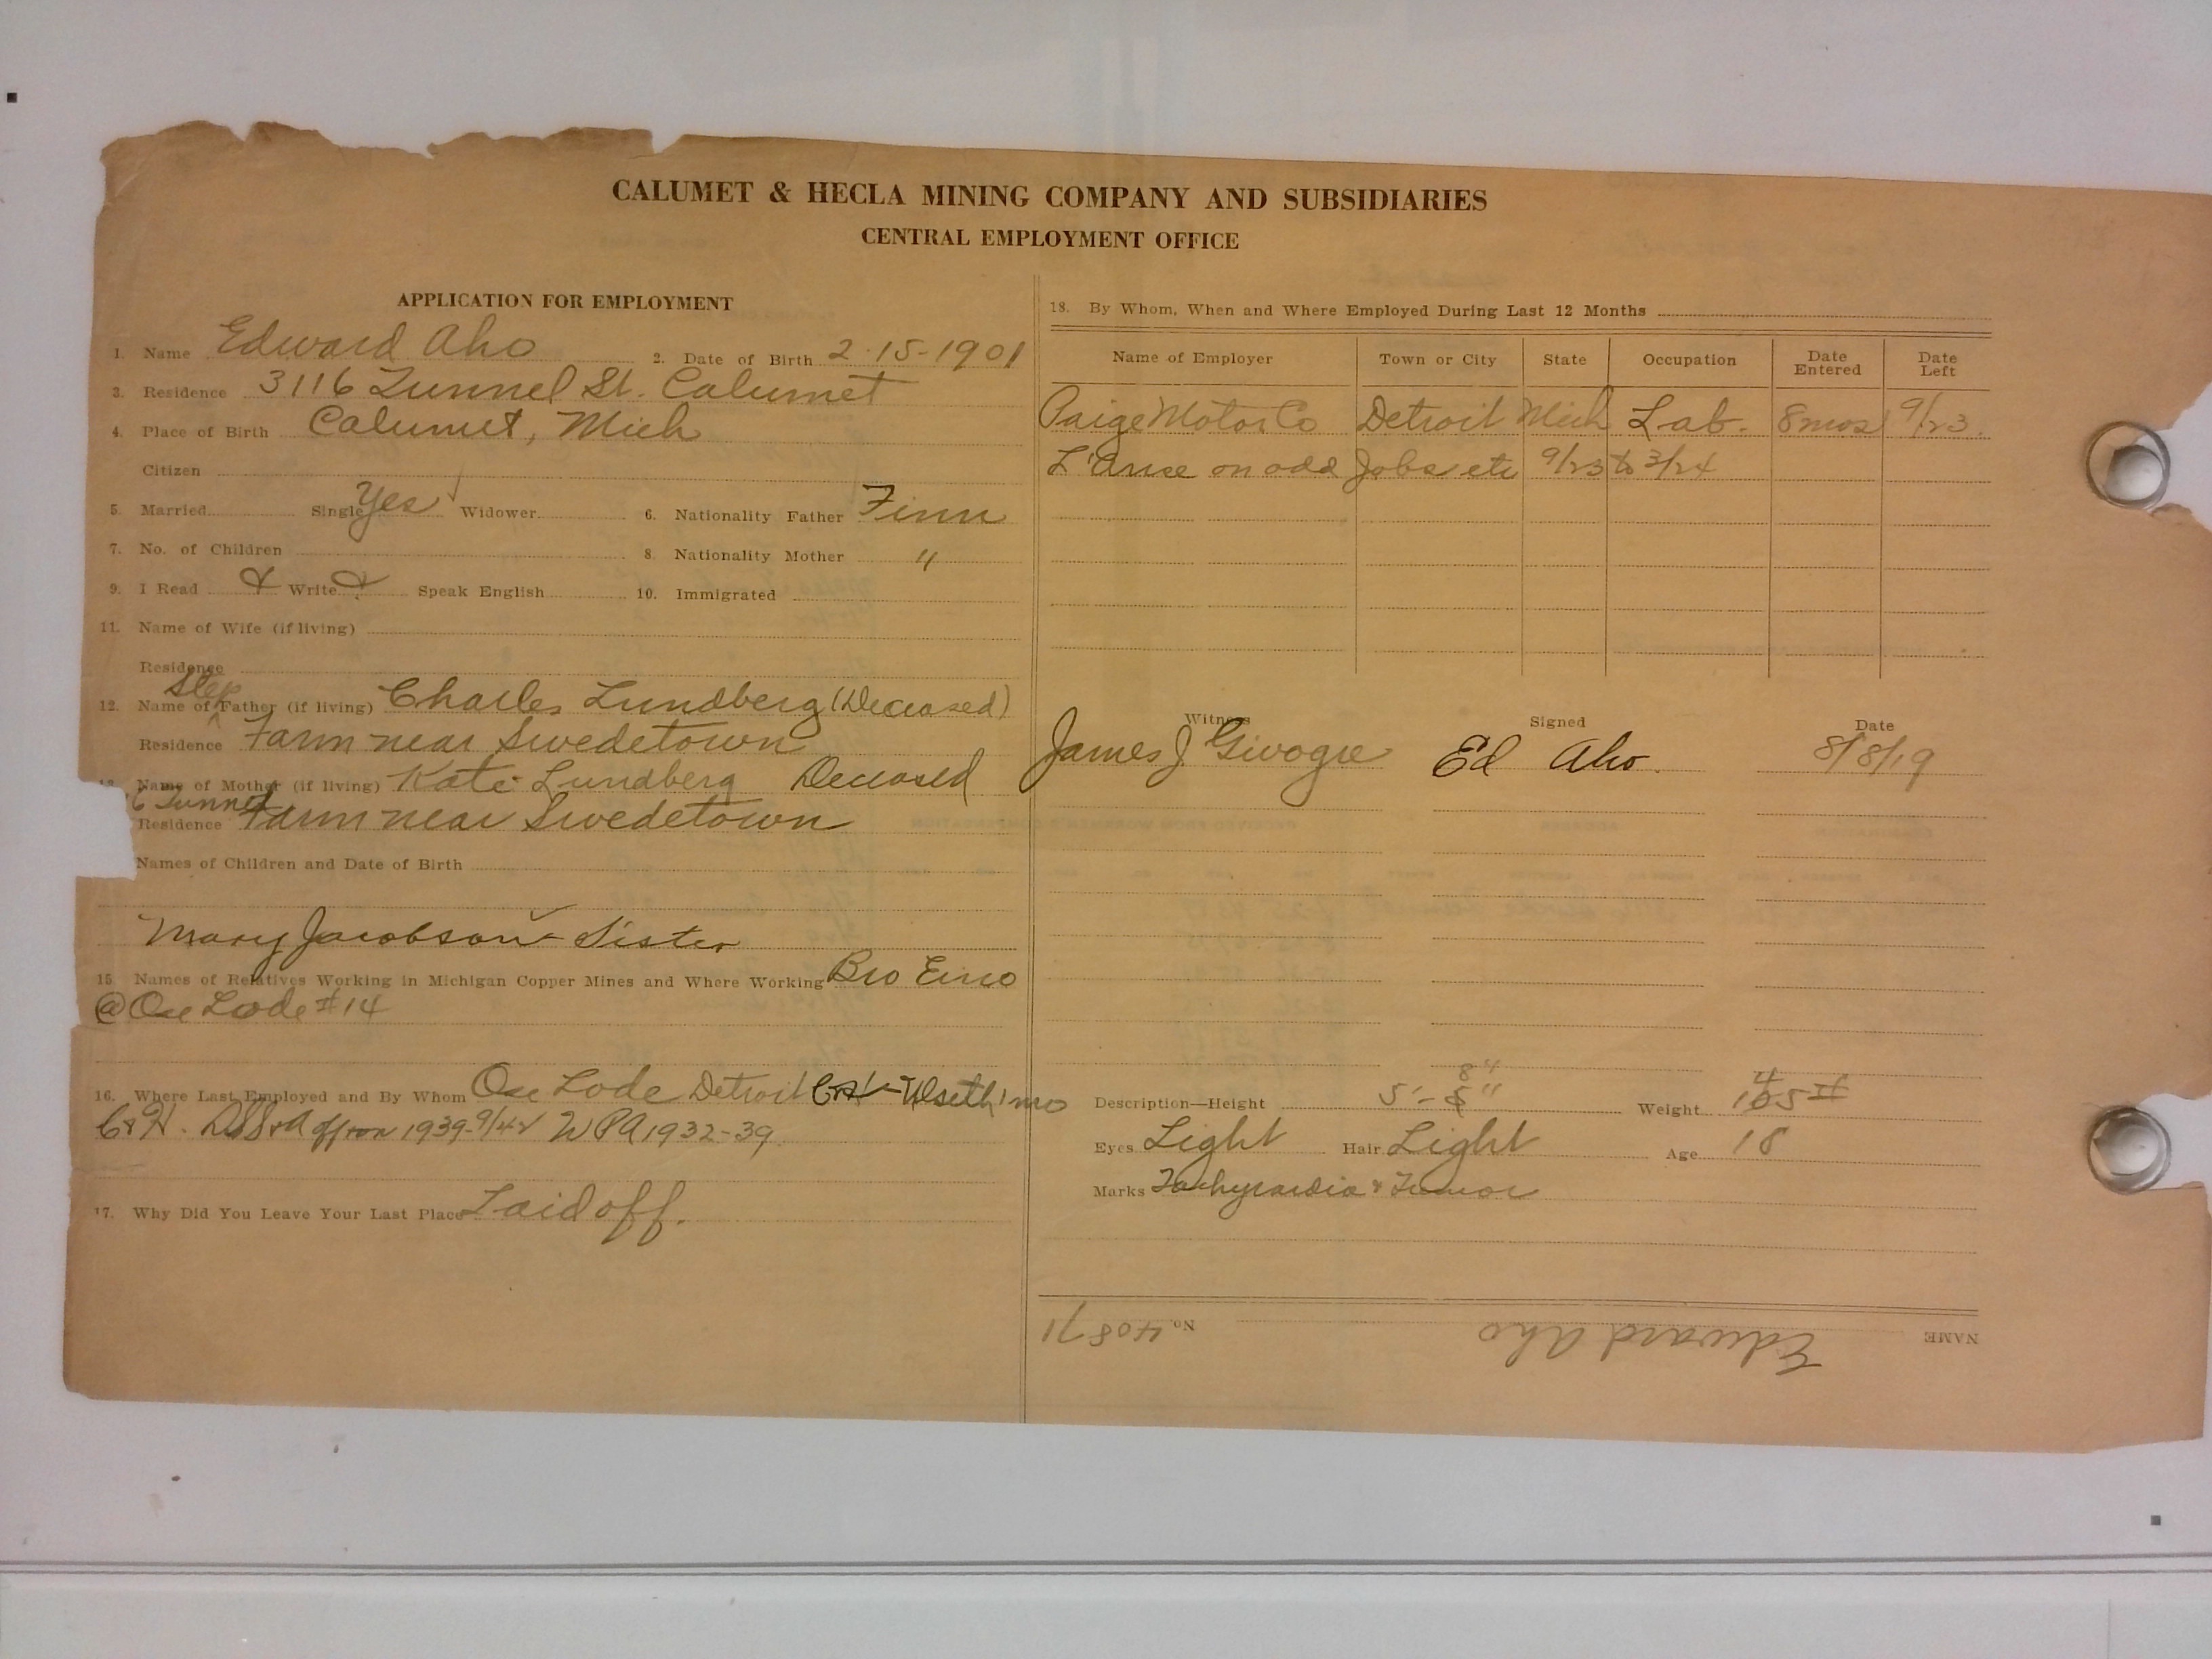 CALUMET & HECLA MINING COMPANY AND SUBSIDIARIES
CENTRAL EMPLOYMENT OFFICE
APPLICATION FOR EMPLOYMENT
1. Name Edward Aho 2. Date of Birth 2-15-1901
3. Residence 3116 Tunnel St. Calumet
4. Place of Birth Calumet, Mich
Citizen
5. Married Single Yes Widower 6. Nationality Father Finn
7. No. of Children 8. Nationality Mother "
9. I Read & Write & Speak English 10. Immigrated
11. Name of Wife (if living)
Residence
Step
12. Name of Father (if living) Charles Lundberg (Deceased)
Residence Farm near Swedetown
Name of Mother (if living) Kate Lundberg Deceased
6 Tunnel
Residence Farm near Swedetown
Names of Children and Date of Birth
Mary Jacobson - Sister
15. Names of Relatives Working in Michigan Copper Mines and Where Working Bro Eino
@ Osc Lode #14
16. Where Last Employed and By Whom Osc Lode Detroit
C&H. 1939-9/42 WPA 1932-39
17. Why Did You Leave Your Last Place Laid off.
18. By Whom, When and Where Employed During Last 12 Months
Name of Employer Town or City State Occupation Date Entered Date Left
Paige Motor Co Detroit Mich Lab. 8 mos 9/23.
L'Anse on odd Jobs etc 9/23 to 3/24
Witness Signed Date
James J Givogre Ed Aho. 8/8/19
8"
Description—Height 5'- " Weight 145 #
Eyes Light Hair Light Age 18
Marks Tachycardia & Tumor
NAME Edward Aho No. 40871